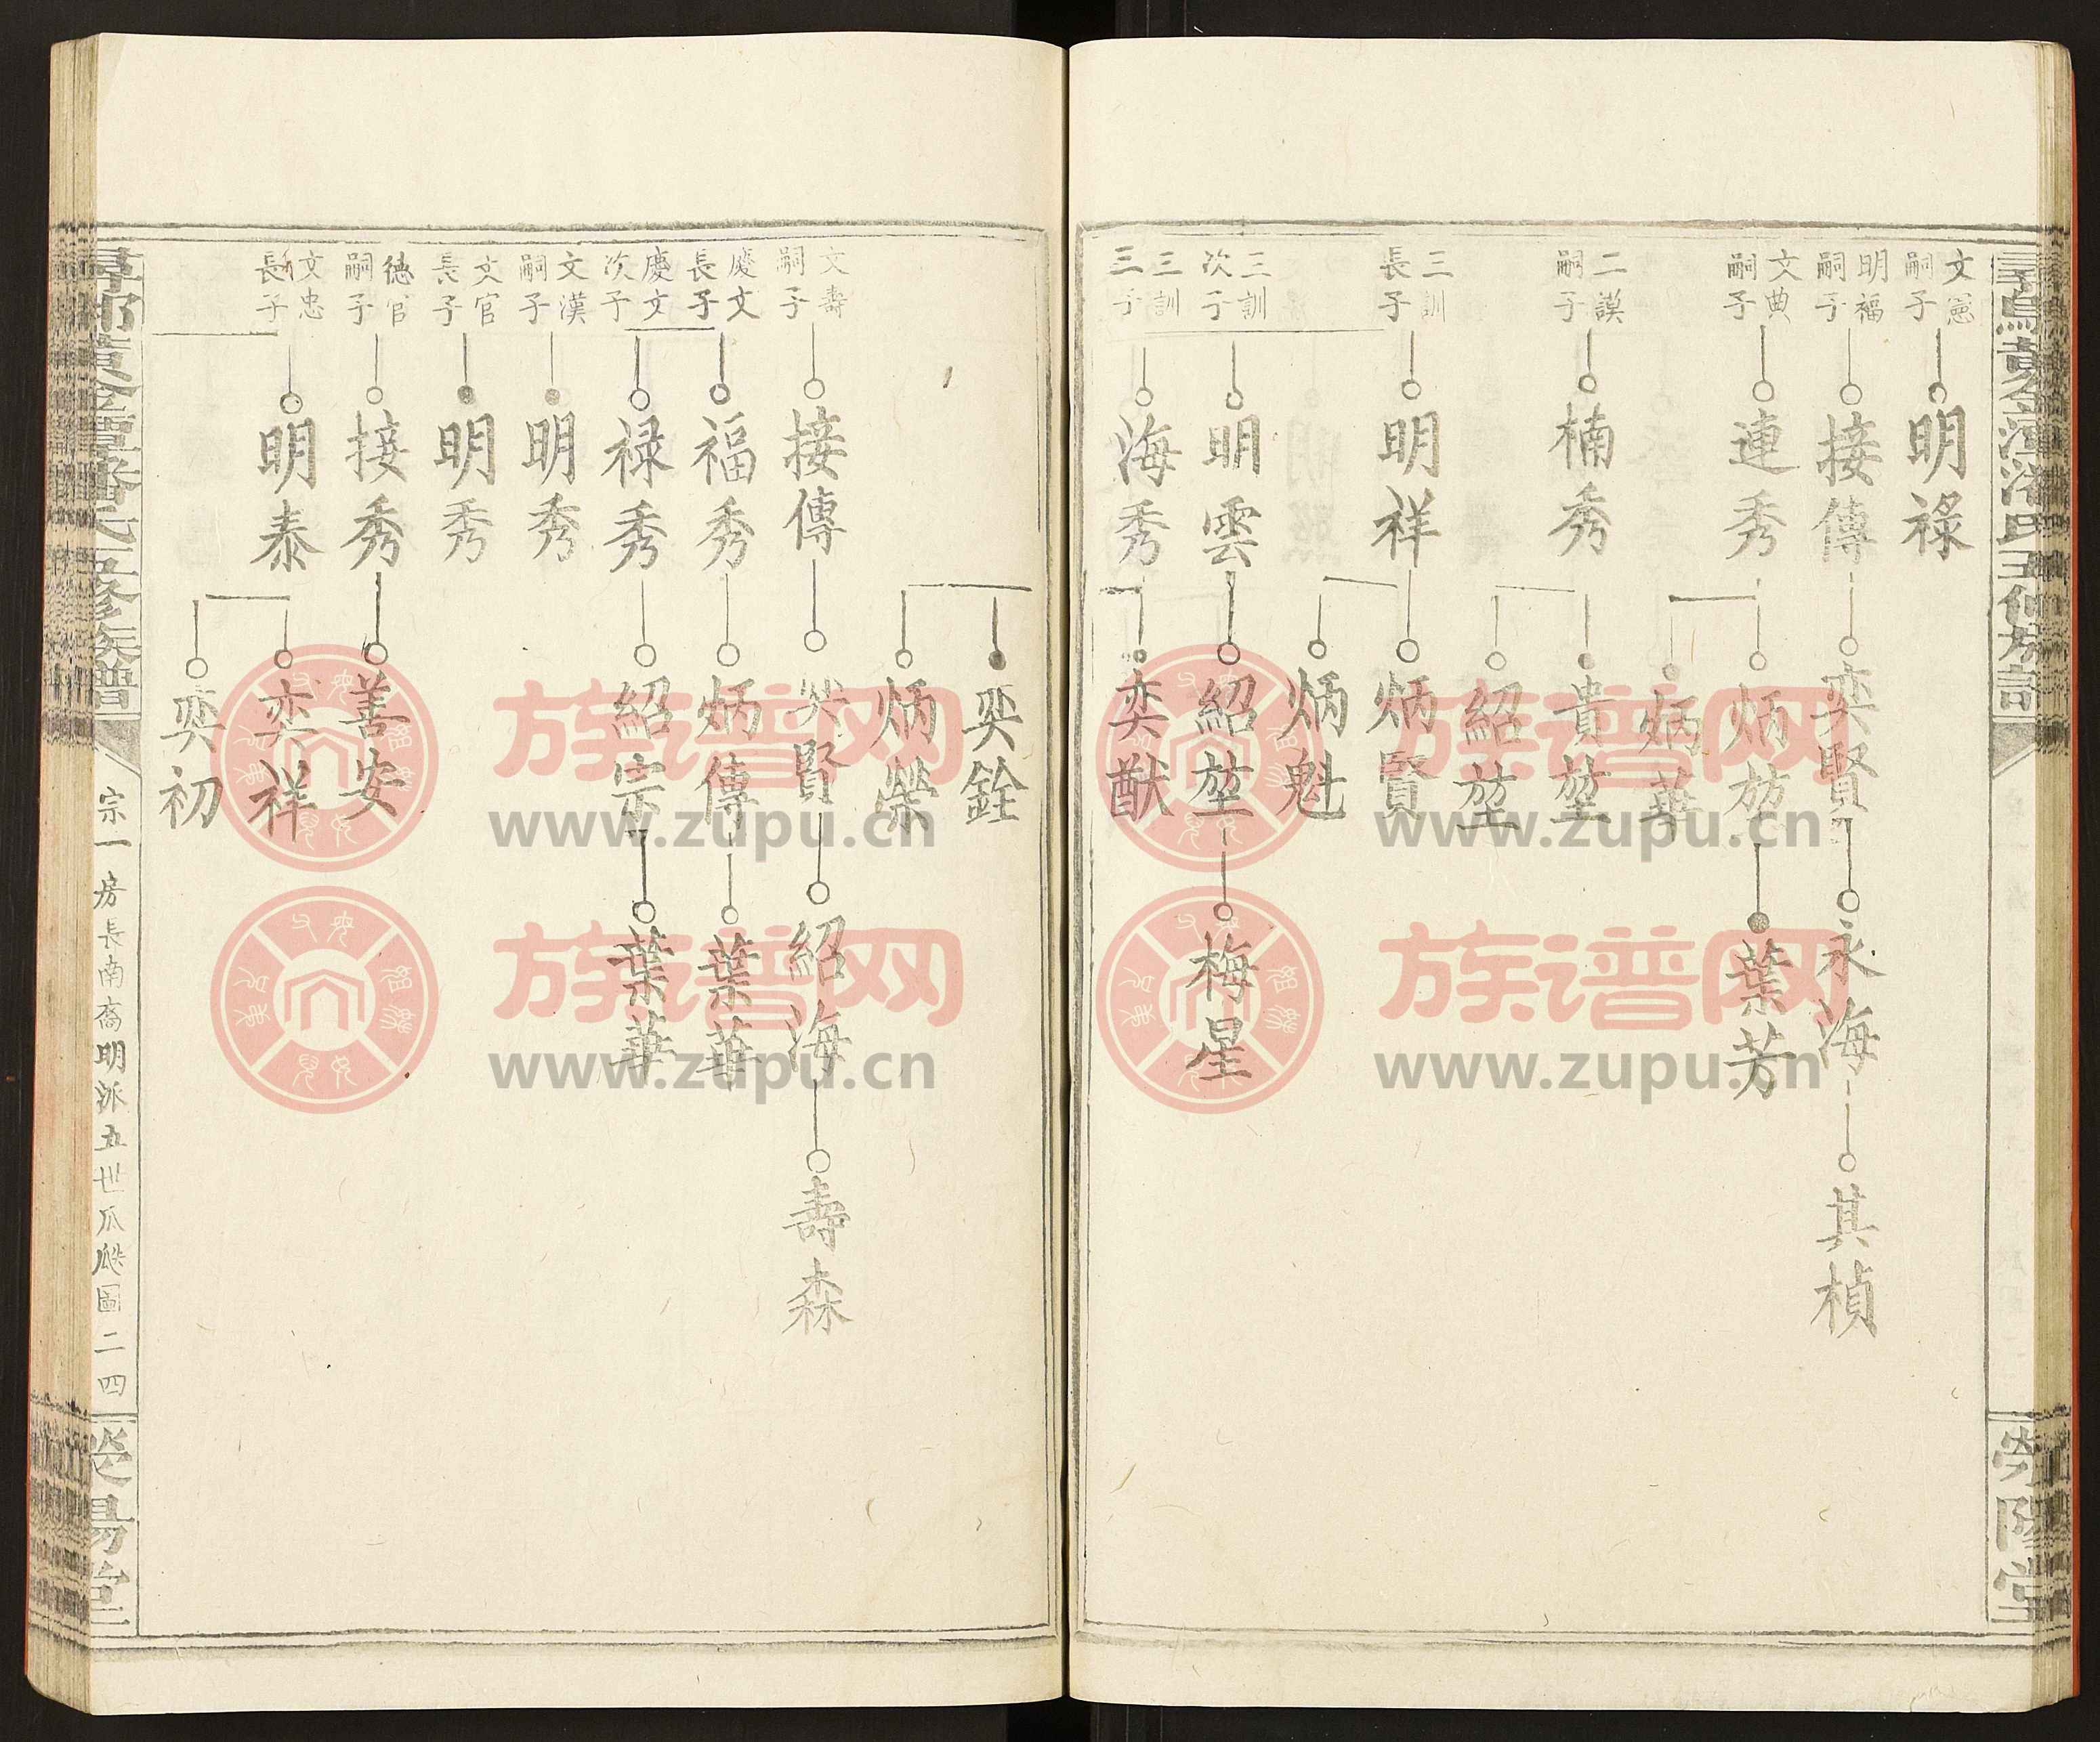 文憲
嗣子
明祿
明福
嗣子
接傳
奕賢
永海
其楨
文典
嗣子
連秀
炳芳
葉芳
炳華
二謨
嗣子
楠秀
貴堃
紹堃
三訓
長子
明祥
炳賢
炳魁
三訓
次子
明雲
紹堃
梅星
三訓
三子
海秀
奕猷
奕銓
炳榮
文壽
嗣子
接傳
奕賢
紹海
壽森
慶文
長子
福秀
炳傳
葉華
慶文
次子
禄秀
紹宗
葉華
文漢
嗣子
明秀
文官
長子
明秀
德官
嗣子
接秀
善安
文忠
長子
明泰
奕祥
奕初
宗一房長南裔明派五世爪瓞圖二四
族谱网
www.zupu.cn
族谱网
www.zupu.cn
族谱网
www.zupu.cn
族谱网
www.zupu.cn